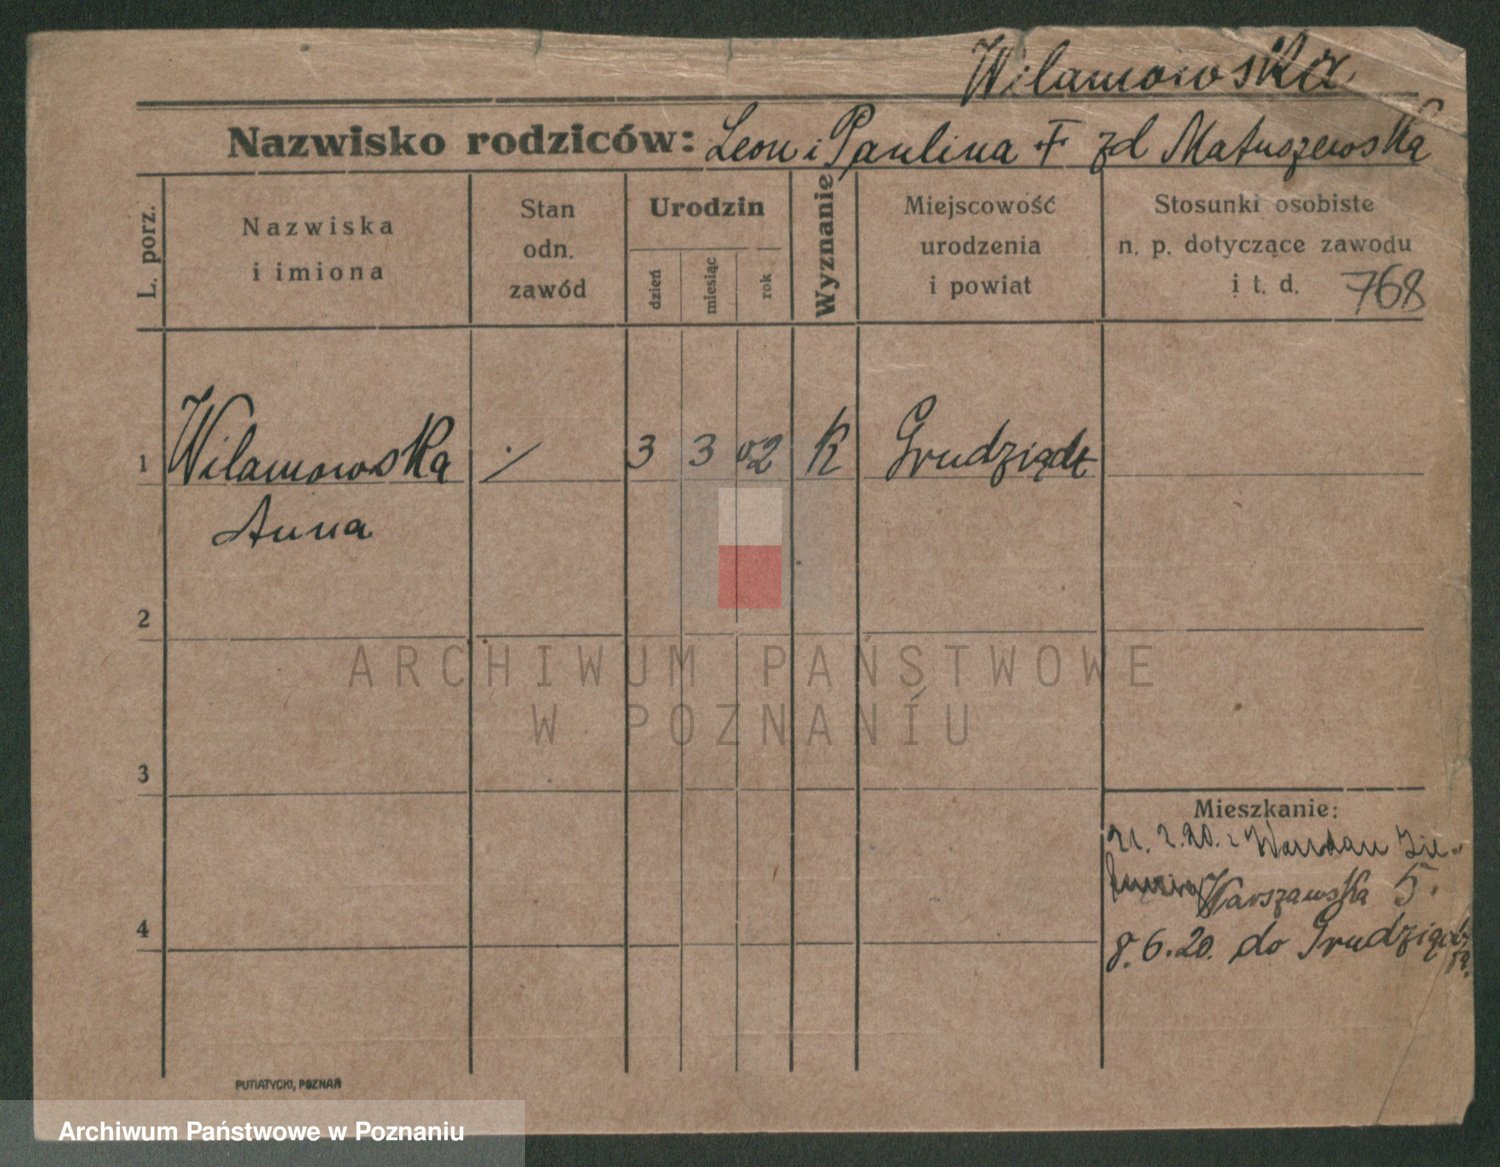 Wilamowska
Nazwisko rodziców: Leon i Paulina zd Matuszewska
L. porz.
Nazwiska
i imiona
Stan
odn.
zawód
Urodzin
dzień
miesiąc
rok
Wyznanie
Miejscowość
urodzenia
i powiat
Stosunki osobiste
n. p. dotyczące zawodu
i t. d. 768
1 Wilamowska ./ 3 3 02 K Grudziądz
Anna
2
ARCHIWUM PAŃSTWOWE
W POZNANIU
3
Mieszkanie:
21. 2. 20. z
Warszawska 5.
4
8. 6. 20. do Grudziądz
PUTIATYCKI, POZNAŃ
Archiwum Państwowe w Poznaniu